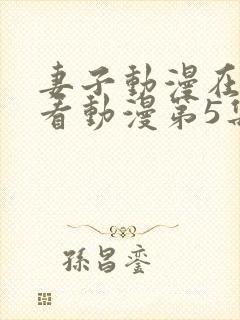 妻子動漫在
看動漫第5集
孫昌鑾